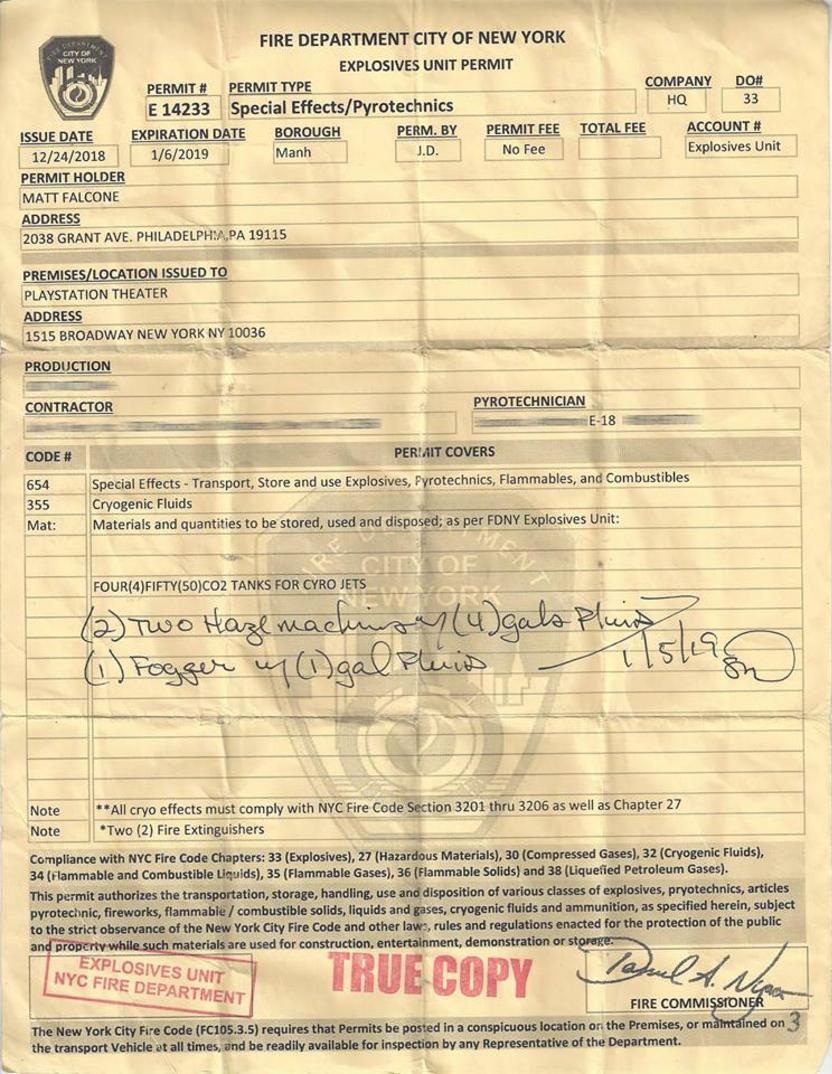 FIRE DEPARTMENT CITY OF NEW YORK
EXPLOSIVES UNIT PERMIT
FIRE DEPARTMENT
CITY OF
NEW YORK
PERMIT # PERMIT TYPE COMPANY DO#
E 14233 Special Effects/Pyrotechnics HQ 33
ISSUE DATE EXPIRATION DATE BOROUGH PERM. BY PERMIT FEE TOTAL FEE ACCOUNT #
12/24/2018 1/6/2019 Manh J.D. No Fee Explosives Unit
PERMIT HOLDER
MATT FALCONE
ADDRESS
2038 GRANT AVE. PHILADELPHIA,PA 19115
PREMISES/LOCATION ISSUED TO
PLAYSTATION THEATER
ADDRESS
1515 BROADWAY NEW YORK NY 10036
PRODUCTION
CONTRACTOR PYROTECHNICIAN
E-18
CODE # PERMIT COVERS
654 Special Effects - Transport, Store and use Explosives, Pyrotechnics, Flammables, and Combustibles
355 Cryogenic Fluids
Mat: Materials and quantities to be stored, used and disposed; as per FDNY Explosives Unit:
FIRE DEPARTMENT
CITY OF
NEW YORK
FOUR(4)FIFTY(50)CO2 TANKS FOR CYRO JETS
(2) Two Haze machines w/ (4) gals Fluid
(1) Fogger w/ (1) gal Fluid 1/5/19
Note **All cryo effects must comply with NYC Fire Code Section 3201 thru 3206 as well as Chapter 27
Note *Two (2) Fire Extinguishers
Compliance with NYC Fire Code Chapters: 33 (Explosives), 27 (Hazardous Materials), 30 (Compressed Gases), 32 (Cryogenic Fluids),
34 (Flammable and Combustible Liquids), 35 (Flammable Gases), 36 (Flammable Solids) and 38 (Liquefied Petroleum Gases).
This permit authorizes the transportation, storage, handling, use and disposition of various classes of explosives, pryotechnics, articles
pyrotechnic, fireworks, flammable / combustible solids, liquids and gases, cryogenic fluids and ammunition, as specified herein, subject
to the strict observance of the New York City Fire Code and other laws, rules and regulations enacted for the protection of the public
and property while such materials are used for construction, entertainment, demonstration or storage.
EXPLOSIVES UNIT
NYC FIRE DEPARTMENT
TRUE COPY
FIRE COMMISSIONER
The New York City Fire Code (FC105.3.5) requires that Permits be posted in a conspicuous location on the Premises, or maintained on
the transport Vehicle at all times, and be readily available for inspection by any Representative of the Department.
3